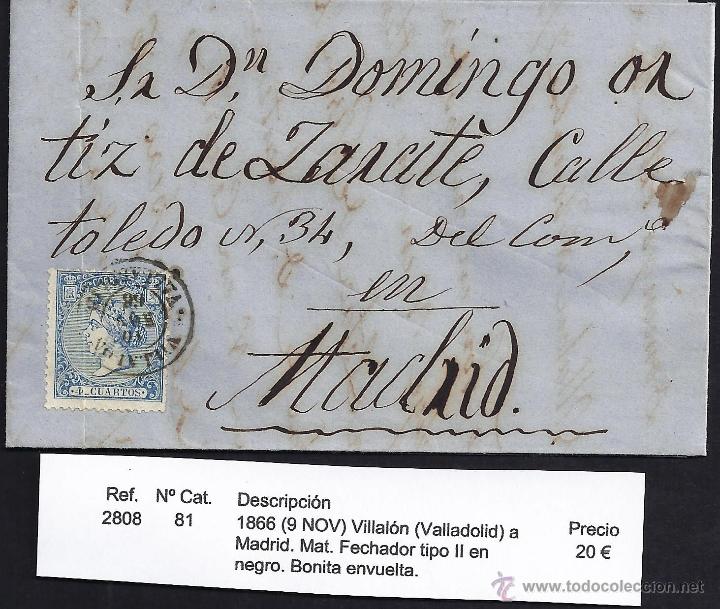 Sr Dn Domingo or
tiz de Zarate, Calle
toledo N, 34, Del Comº
en
Madrid.
4 CUARTOS
Ref. Nº Cat. Descripción Precio
2808 81 1866 (9 NOV) Villalón (Valladolid) a 20 €
Madrid. Mat. Fechador tipo II en
negro. Bonita envuelta.
www.todocoleccion.net